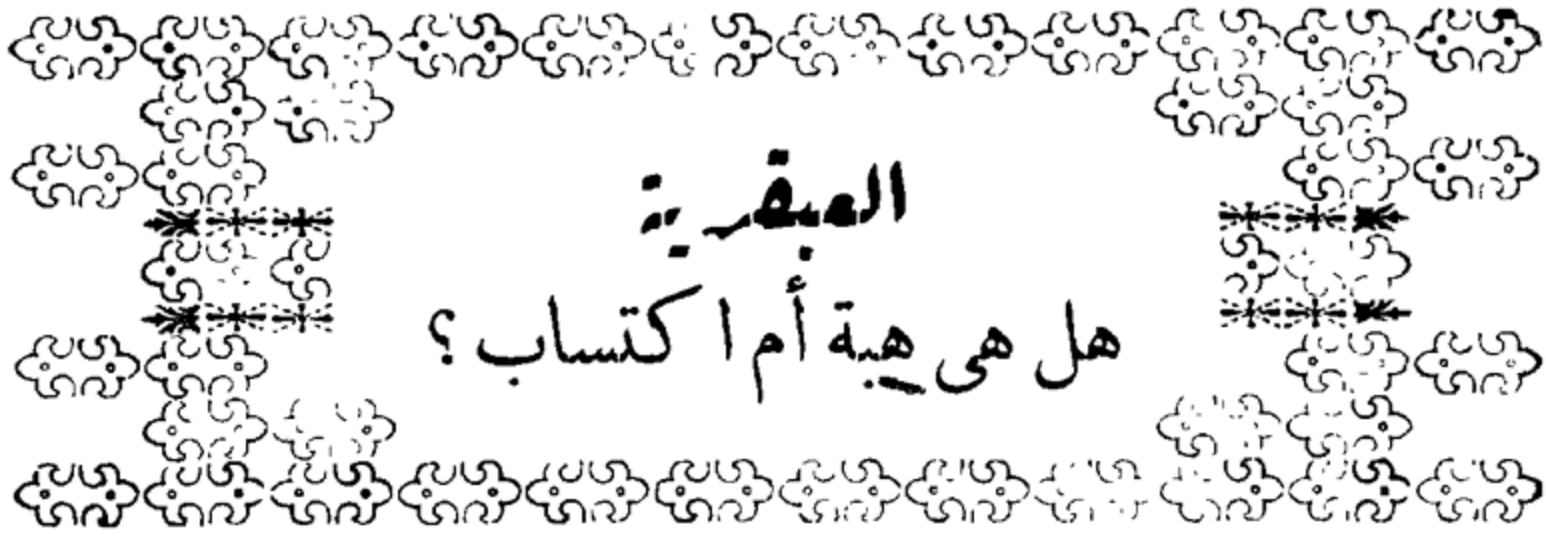 العبقرية
هل هى هبة أم اكتساب ؟